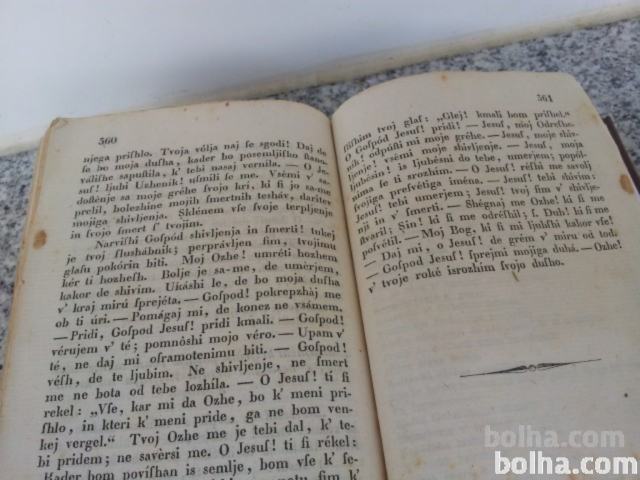 360
njega priſhlo. Tvoja vólja naj ſe sgodi! Daj de
ſe bo moja duſha, kader bo poſemlijſko ſtano-
váliſhe sapuſtila, k' tebi nasaj vernila. — O Je-
suſ! ljubi Uzhenik! uſmili ſe me. Vsémi v' sa-
doſtenje sa moje gréhe ſvojo kri, ki ſi jo sa me
prelil, bolezhine mojih ſmertnih teshàv, daritev
mojiga shivlenja. Sklénem vſe ſvoje terplenje
in ſvojo ſmert ſ' tvojim.
Narviſhi Goſpód shivlenja in ſmerti! tukej
je tvoj ſlushábnik; perprávljen ſim, tvojimu
glaſu pokórin biti. Moj Ozhe! umréti hozhem
kér ti hozheſh. Bolje je sa-me, de umèrjem,
kakor de shivím. Ukáshi le, de bo moja duſha
v' kraj mirú ſprejéta. — Goſpod! pokrepzháj me
ob ti úri. — Pomágaj mi, de konez ne vsámem.
— Pridi, Goſpod Jesuſ! pridi kmali. — Goſpod!
vérujem v' té; pomnôshi mojo véro. — Upam v'
te, ne daj mi oſramotenimu biti. — Goſpod!
véſh, de te ljubim. Ne shivljenje, ne ſmert
me ne bota od tebe lozhíla. — O Jesuſ! ti ſi
rekel: „Vſe, kar mi da Ozhe, bo k' meni pri-
ſhlo, in kteri k' meni pride, ga ne bom ven-
kej vergel.“ Tvoj Ozhe me je tebi dal, k' te-
bi pridem; ne savèrsi me. O Jesuſ! ti ſi rékel:
Kader bom povíſhan is semlje, bom vſe k' ſe-
361
ſliſhim tvoj glaſ: „Glej! kmali bom priſhel.“
O Goſpód Jesuſ! pridi! — Jesuſ, moj Odreſhe-
nik! odpuſti mi moje gréhe. — Jesuſ, moje shiv-
ljenje! vsémi moje shivljenje. — Jesuſ, moja
ljubésin! is ljubésni do tebe, umerjem; popól-
nima ſim tvoj. — O Jesuſ! réſhi me savólj
tvojiga preſvétiga iména. — Jesuſ! tebi shivím;
Jesuſ! tebi umerjem; Jesuſ! tvoj ſim v' shivlje-
nji in v' ſmerti. — Shégnaj me Ozhe! ki ſi me
ſtvaril; Sin! ki ſi me odréſhil; ſ. Duh! ki ſi me
poſvétil. — Moj Bog, ki ſi mi ljubſhi kakor vſe!
— Daj mi, o Jesuſ! de grem v' miru od tod.
— Goſpod Jesuſ! ſprejmi mojiga duhá. — Ozhe!
v' tvoje roké isrozhim ſvojo duſho.
bolha.com
bolha.com